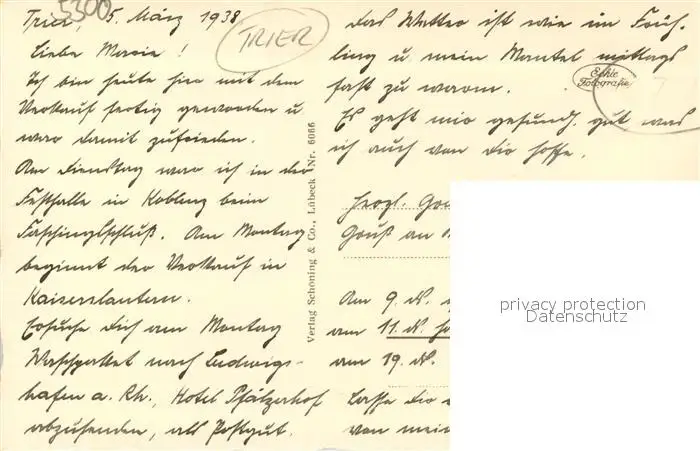 5300
Trier, 5. März 1938
TRIER
Liebe Marie!
Ich bin heute hier mit dem
Verkauf fertig geworden u
war damit zufrieden.
Am Dienstag war ich in der
Festhalle in Koblenz beim
Faschingsschluß. Am Montag
beginnt der Verkauf in
Kaiserslautern.
Ersuche Dich am Montag
Waschpaket nach Ludwigs-
hafen a. Rh., Hotel Pfälzerhof
abzusenden, als Postgut.
Verlag Schöning & Co., Lübeck Nr. 6066
das Wetter ist wie im Früh-
ling u mein Mantel mittags
fast zu warm.
Echte
Fotografie
Es geht mir gesundh. gut was
ich auch von Dir hoffe.
Herzl.
Gruß an
Am 9. ds.
am 11. ds.
am 19. ds.
Lasse Dir
von mein
privacy protection
Datenschutz